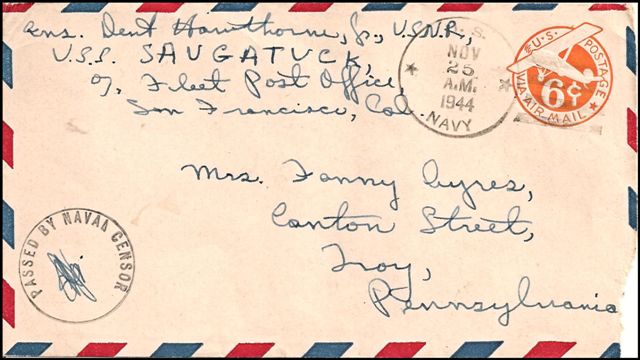 Ens. Dent Hawthorne, Jr., U.S.N.R.,
U.S.S. SAUGATUCK,
℅, Fleet Post Office,
San Francisco, Cal.
U.S.
NOV
25
A.M.
1944
NAVY
U.S. POSTAGE
6¢
VIA AIR MAIL
Mrs. Fanny Ayres,
Canton Street,
Troy,
Pennsylvania
PASSED BY NAVAL CENSOR